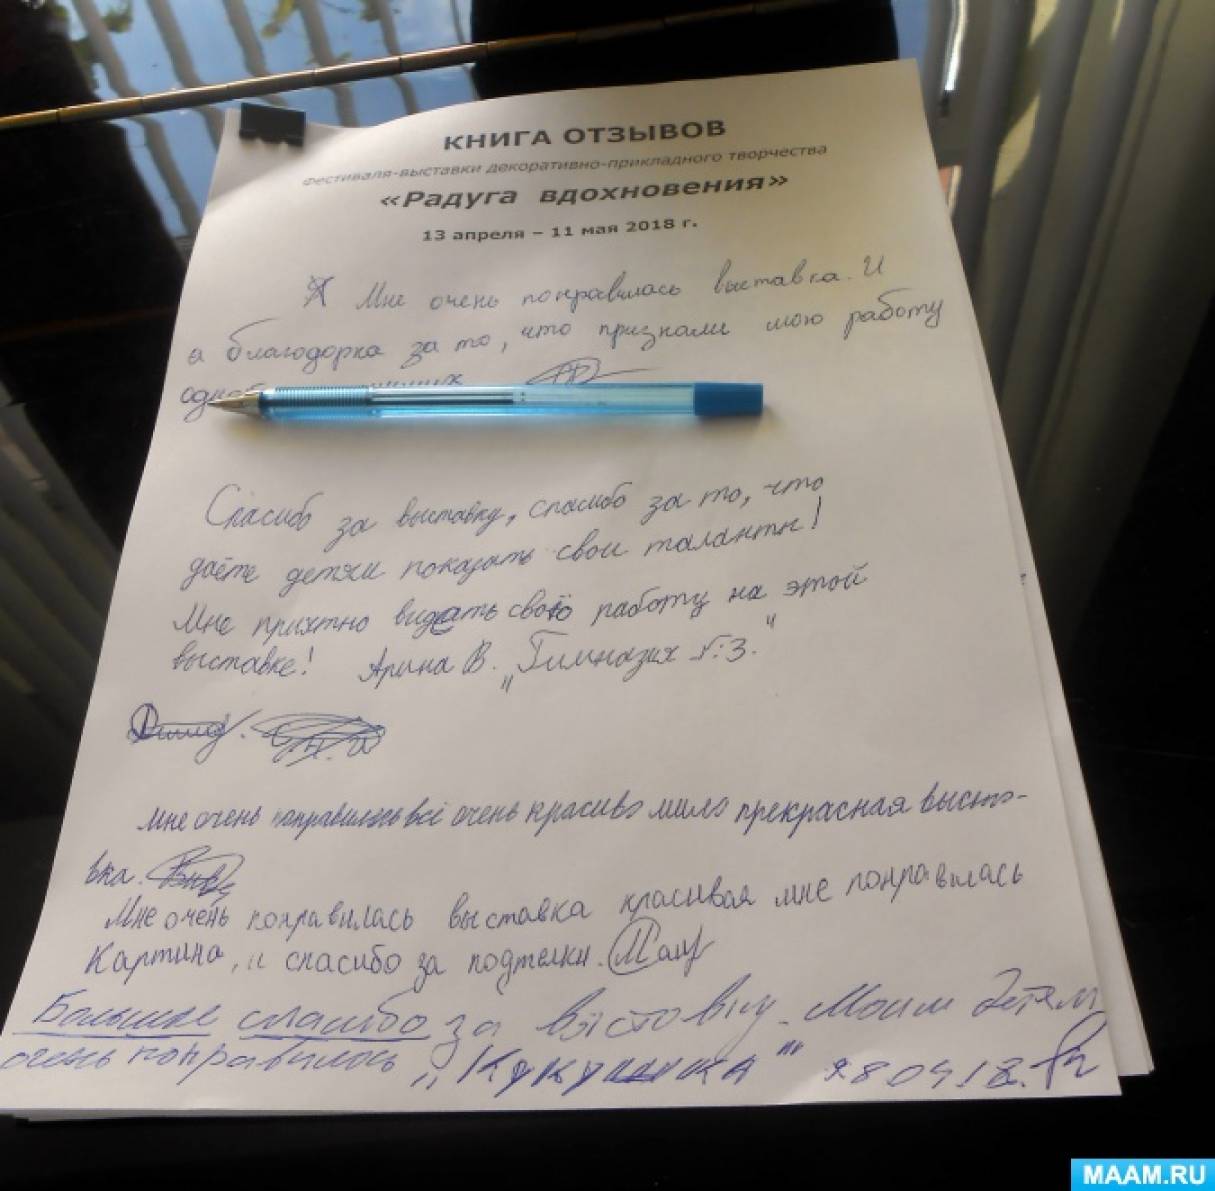 КНИГА ОТЗЫВОВ
фестиваля-выставки декоративно-прикладного творчества
«Радуга вдохновения»
13 апреля – 11 мая 2018 г.
Я Мне очень понравилась выставка. И
я благодорна за то, что признали мою работу
Спасибо за выставку, спасибо за то, что
даёте детям показать свои таланты!
Мне приятно видеть свою работу на этой
выставке! Арина В. „Гимназия №3."
мне очень понравилось всё очень красиво мило прекрасная выста-
вка.
Мне очень понравилась выставка красивая мне понравилась
Картина, и спасибо за подтелки.
Большое спасибо за выставку. Моим детям
очень понравилось „Кукушка" 28 04 18г.
MAAM.RU